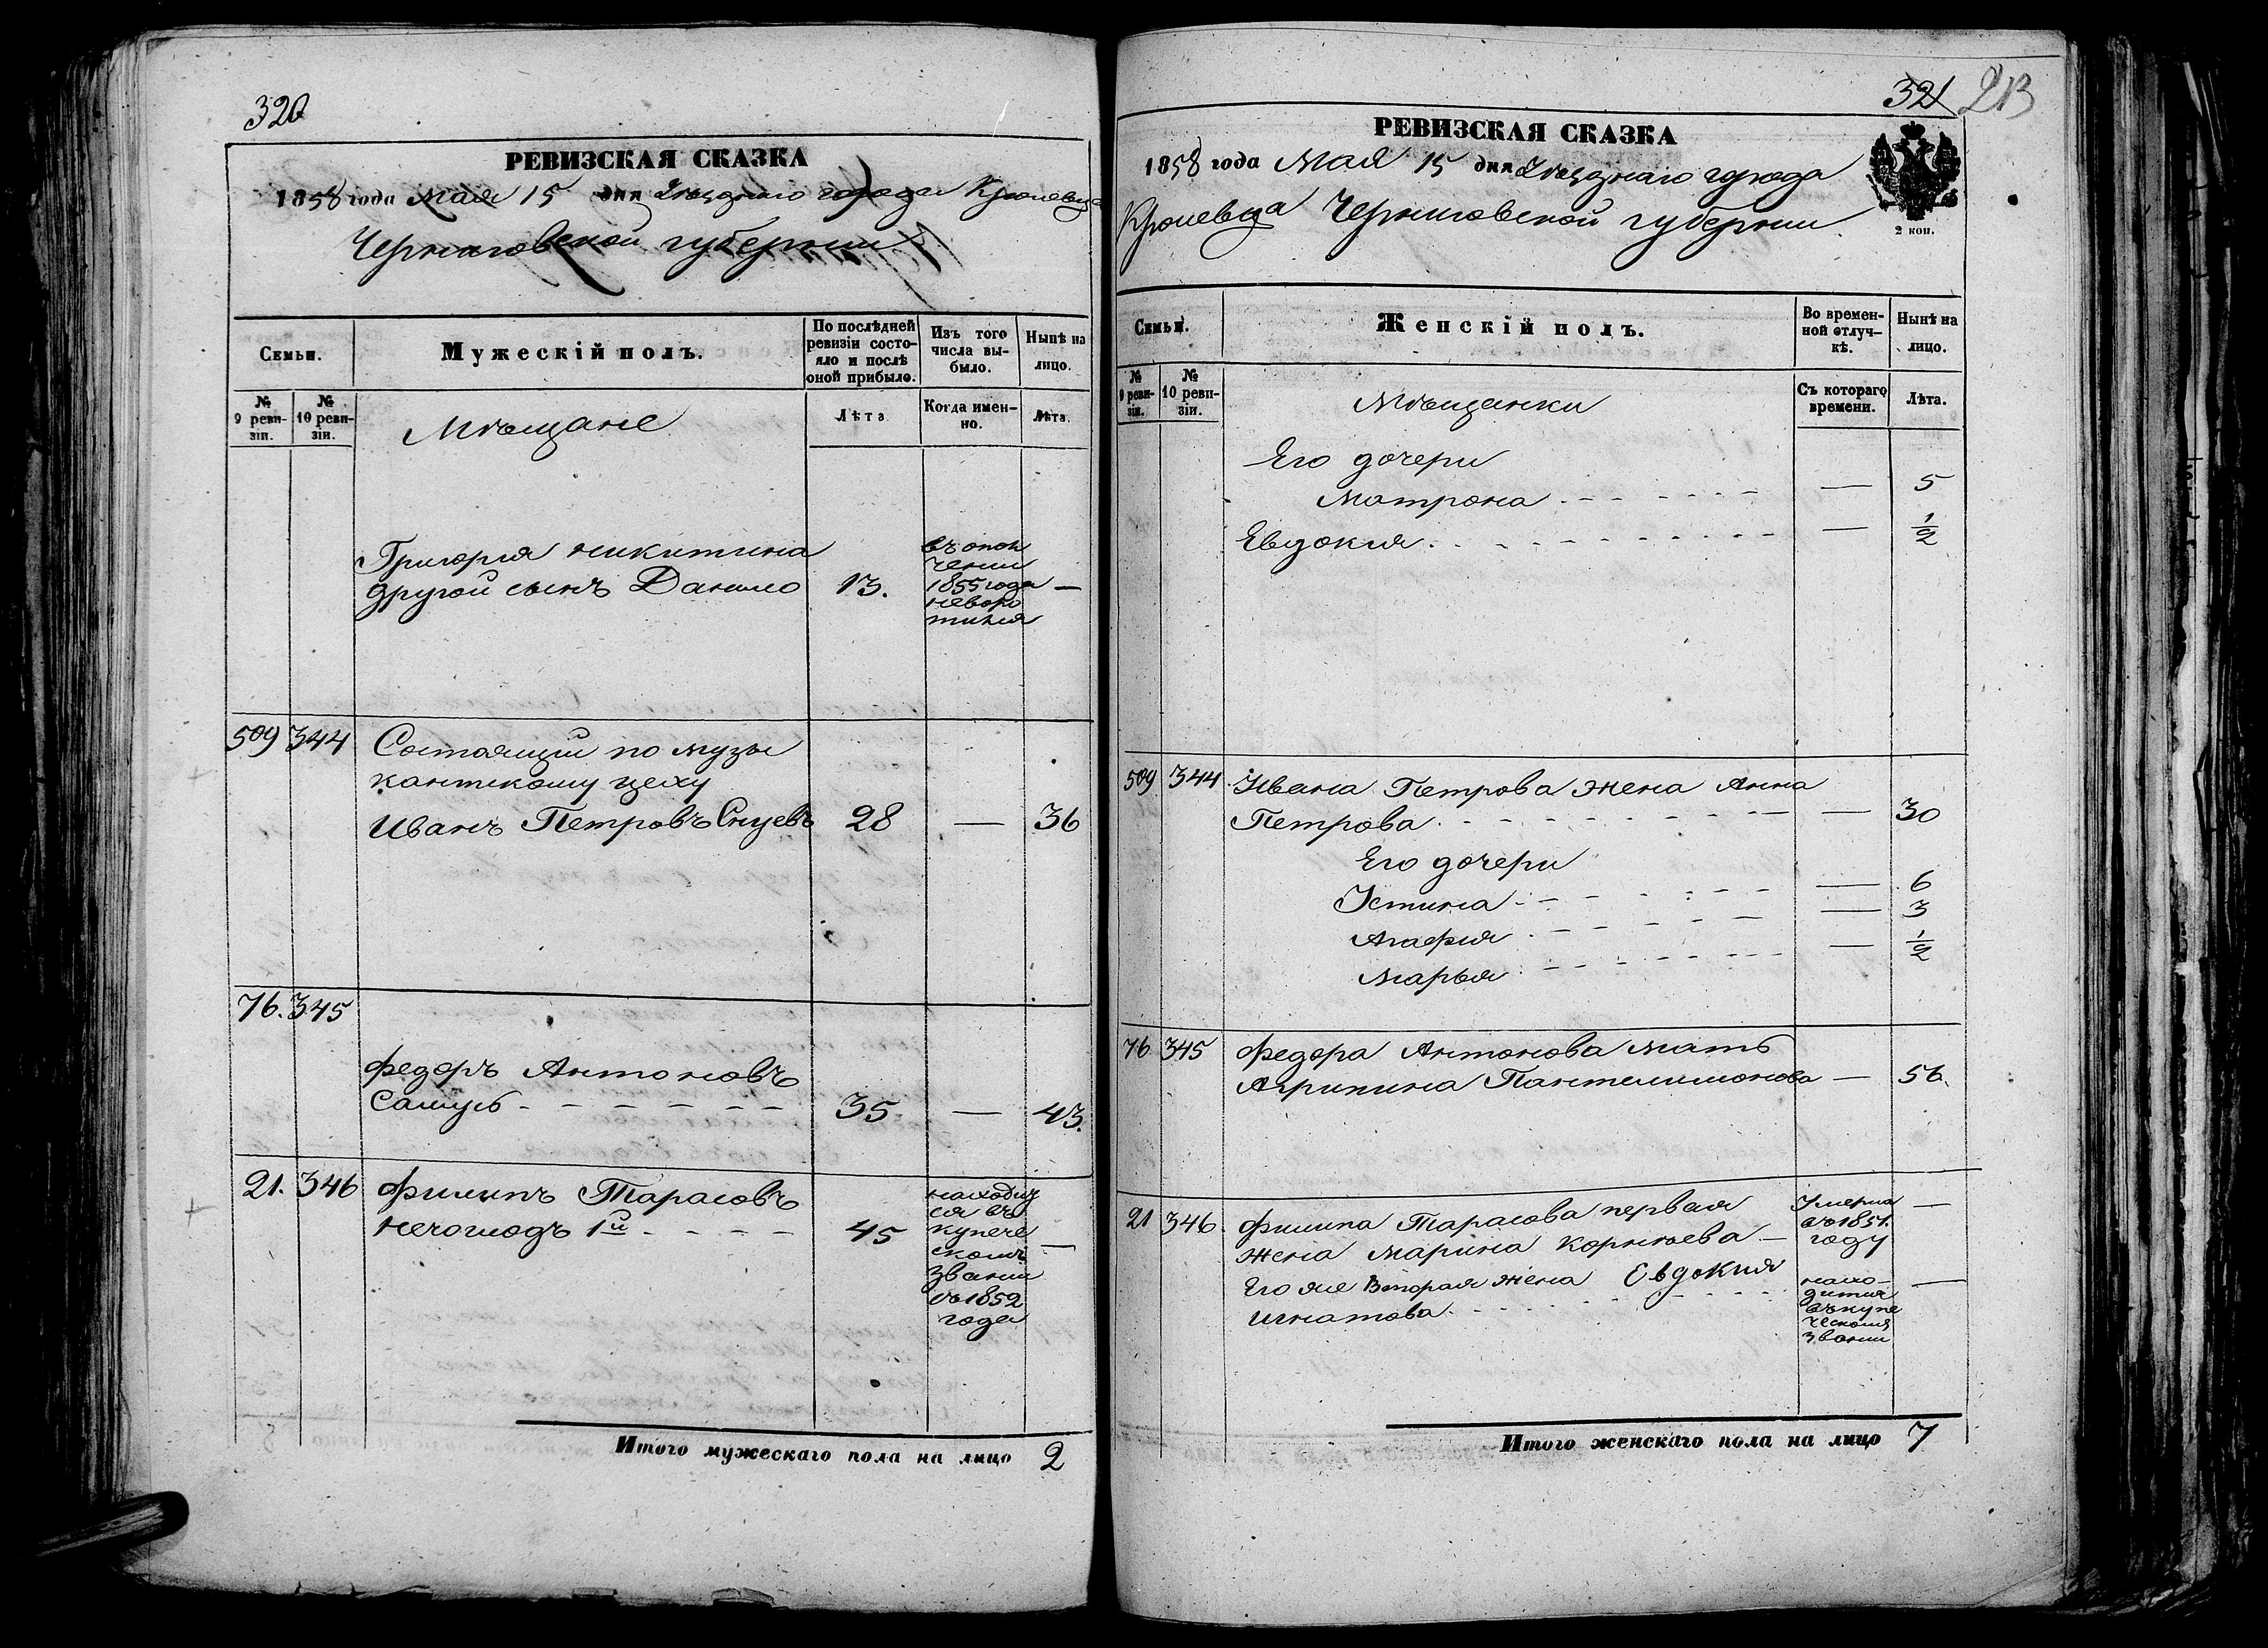 320
РЕВИЗСКАЯ СКАЗКА
1858 года Мая 15 дня Уѣзднаго города Кролевца
Черниговской губерніи
Семьи.
Мужескій полъ.
По послѣдней ревизіи состояло и послѣ оной прибыло.
Изъ того числа выбыло.
Нынѣ на лицо.
№ 9 ревизіи.
№ 10 ревизіи.
Мѣщане
Лѣта
Когда именно.
Лѣта.
Григорія Никитина
другой сынъ Данило 13. —
въ опол
ченіи
1855 года
509 344 Состоящій по музы
кантскому цеху
Иванъ Петровъ 28 — 36
76. 345
Федоръ Антоновъ
Самусь 35 — 43.
21. 346 Филипъ Тарасовъ
Нечоглодъ 1й 45 —
находиц
ся въ
купече
скомъ
званіи
съ 1852
года
Итого мужескаго пола на лицо 2
321 213
РЕВИЗСКАЯ СКАЗКА
1858 года Мая 15 дня Уѣзднаго города
Кролевца Черниговской губерніи
2 коп.
Семьи.
Женскій полъ.
Во временной отлучкѣ.
Нынѣ на лицо.
№ 9 ревизіи.
№ 10 ревизіи.
Мѣщанки
Съ котораго времени.
Лѣта.
Его дочери
Матрона — 5
Евдокия — 1/2
509 344 Ивана Петрова жена Анна
Петрова — 30
Его дочери
Устина — 6
Агафия — 3
Марья — 1/2
76 345 Федора Антонова мать
Агрипина Пантелимонова — 56.
21 346. Филипа Тарасова первая
жена Марина Корнѣева —
Умерла
въ 1851.
году
Его же Вторая жена Евдокия
Игнатова —
нахо-
дится
въ купе
ческомъ
званіи
Итого женскаго пола на лицо 7